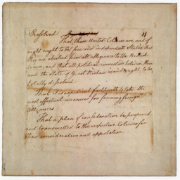 Resolved
That these United Colonies are and of
right ought to be free and independent States; that
they are absolved from all allegiance to the British
Crown, and that all political connection between them
and the state of Great Britain is and ought to be
totally dissolved.
That it is expedient forthwith to take the
most effectual measures for forming foreign
alliances.
That a plan of confederation be prepared
and transmitted to the respective Colonies for
their consideration and approbation.